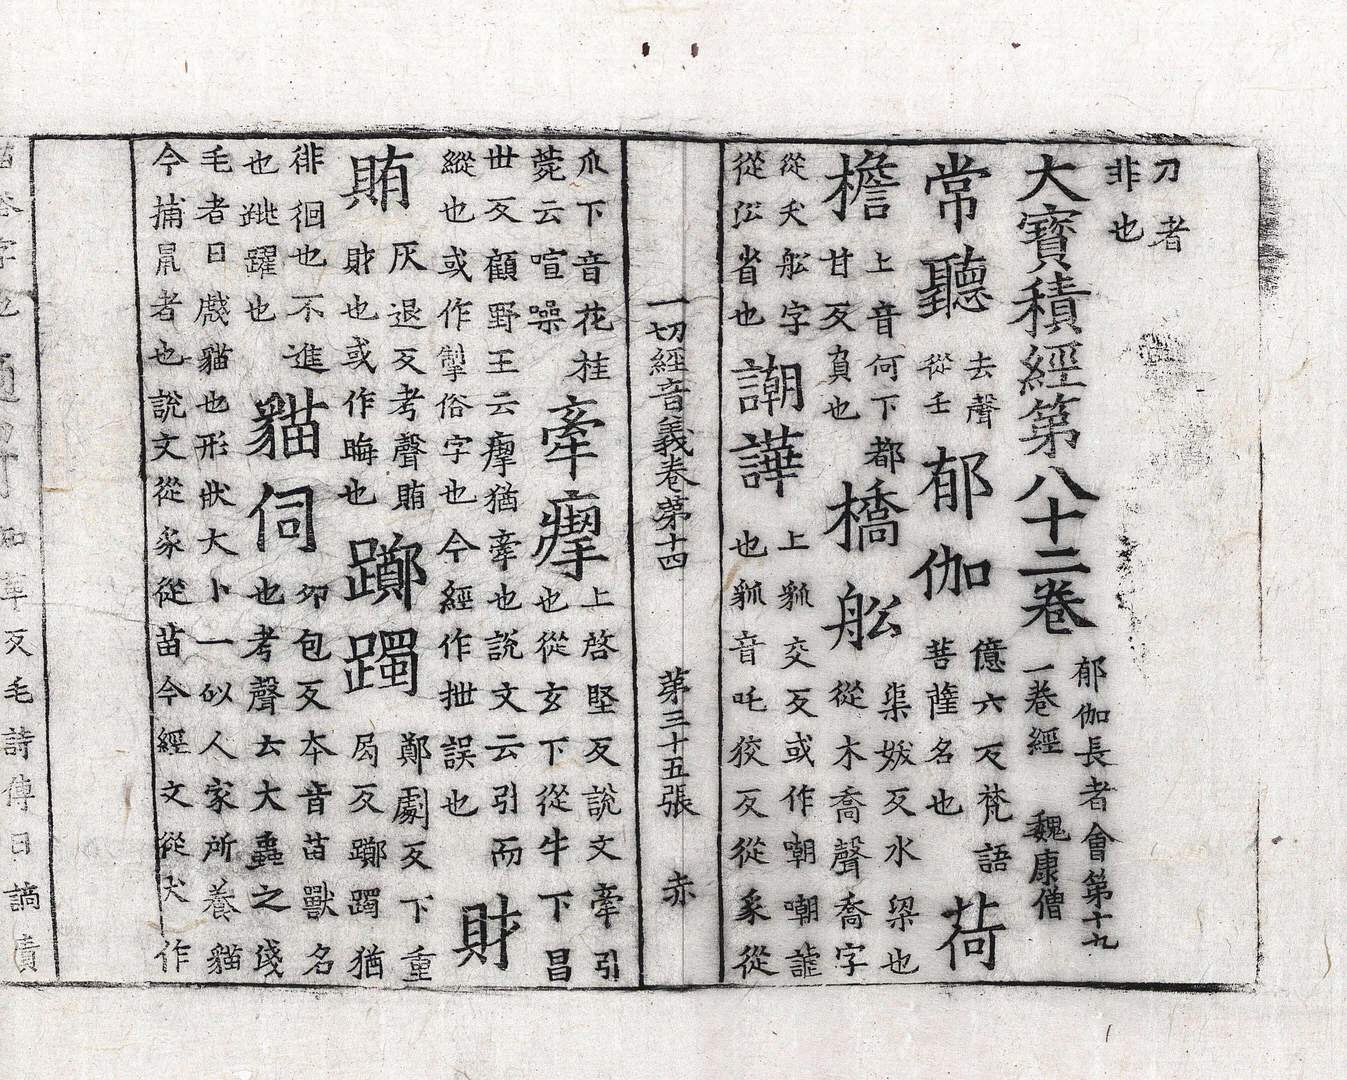 刀者
非也
大寶積經第八十二卷
郁伽長者會第十九
一卷經　魏康僧
常聽
去聲
從壬
郁伽
億六反梵語
菩薩名也
荷
檐
上音何下都
甘反負也
橋舩
渠妖反水梁也
從木喬聲喬字
從夭舩字
從㕣省也
謿譁
上䝙交反或作嘲嘲謔
也䝙音吒狡反從豸從
一切經音義卷第十四　第三十五張　赤
爪下音花桂
蕿云喧噪
牽瘛
上啓堅反說文牽引
也從玄下從牛下昌
丗反顧野王云瘛猶牽也說文云引而
縱也或作掣俗字也今經作拙誤也
財
賄
灰退反考聲賄
財也或作晦也
躑躅
鄭劇反下重
局反躑躅猶
徘徊也不進
也跳躍也
貓伺
卯包反本音苗獸名
也考聲云大蟲之淺
毛者曰虥貓也形狀大卜一似人家所養貓
今捕鼠者也說文從豸從苗今經文從犬作
革反毛詩傳曰讁責